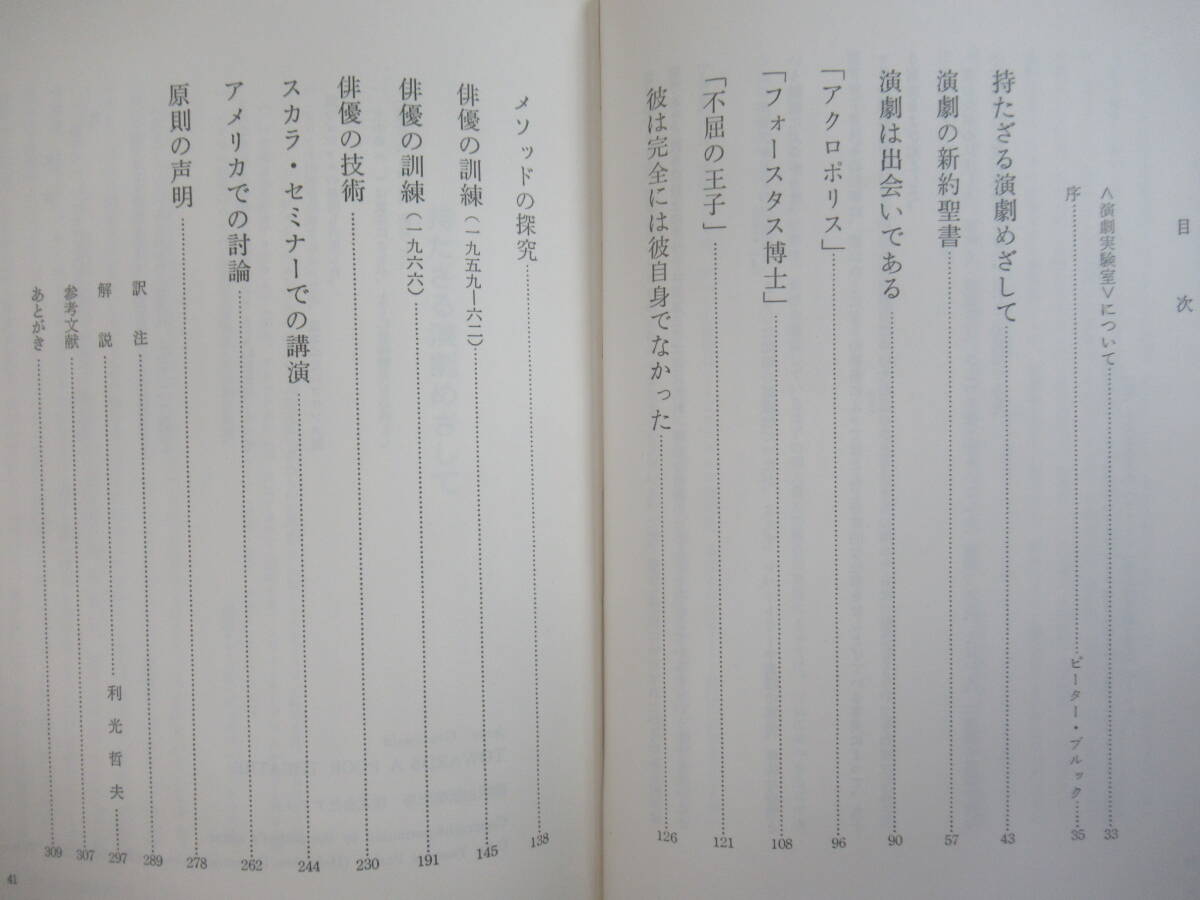 目次
＜演劇実験室＞について……33
序……ピーター・ブルック……35
持たざる演劇めざして……43
演劇の新約聖書……57
演劇は出会いである……90
「アクロポリス」……96
「フォースタス博士」……108
「不屈の王子」……121
彼は完全には彼自身でなかった……126
メソッドの探究……138
俳優の訓練（一九五九―六二）……145
俳優の訓練（一九六六）……191
俳優の技術……230
スカラ・セミナーでの講演……244
アメリカでの討論……262
原則の声明……278
訳注……289
解説……利光哲夫……297
参考文献……307
あとがき……309
41